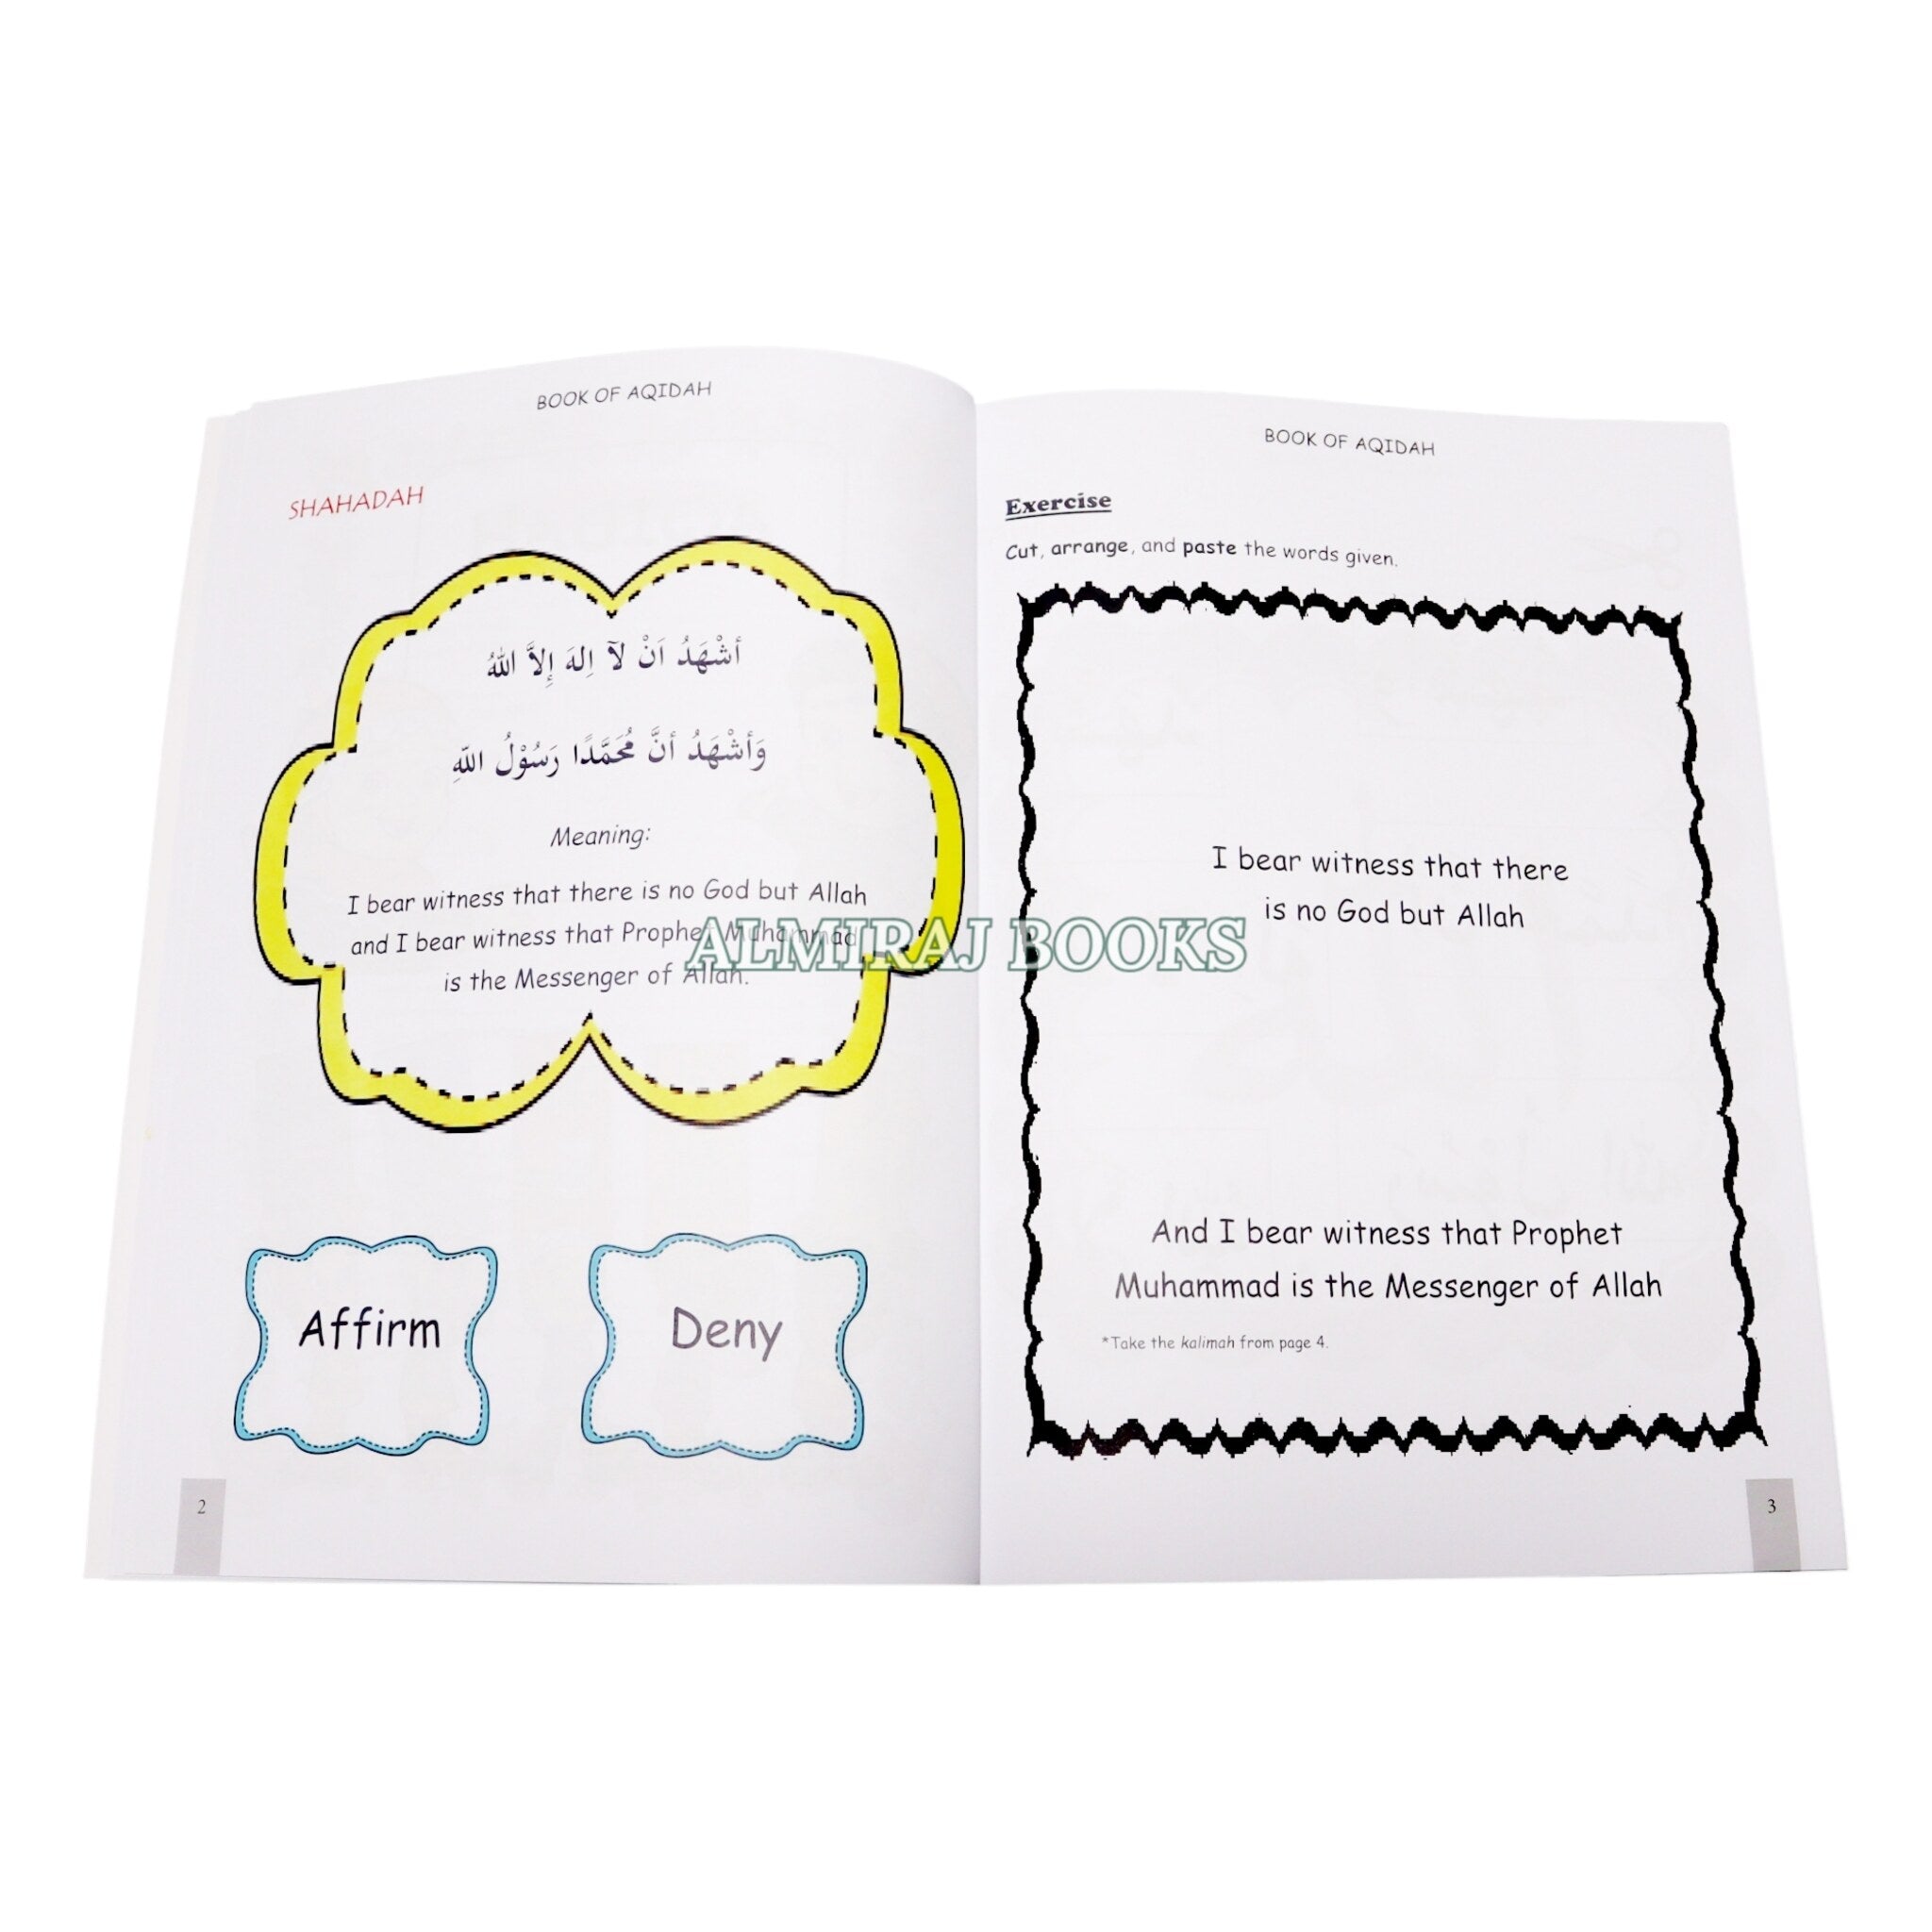 BOOK OF AQIDAH
SHAHADAH
أشْهَدُ اَنْ لَآ اِلهَ إِلاَّ اللهُ
وَأشْهَدُ أنَّ مُحَمَّدًا رَسُوْلُ اللّهِ
Meaning:
I bear witness that there is no God but Allah
and I bear witness that Prophet Muhammad
is the Messenger of Allah.
Affirm
Deny
2
BOOK OF AQIDAH
Exercise
Cut, arrange, and paste the words given.
I bear witness that there
is no God but Allah
And I bear witness that Prophet
Muhammad is the Messenger of Allah
*Take the kalimah from page 4.
3
ALMIRAJ BOOKS